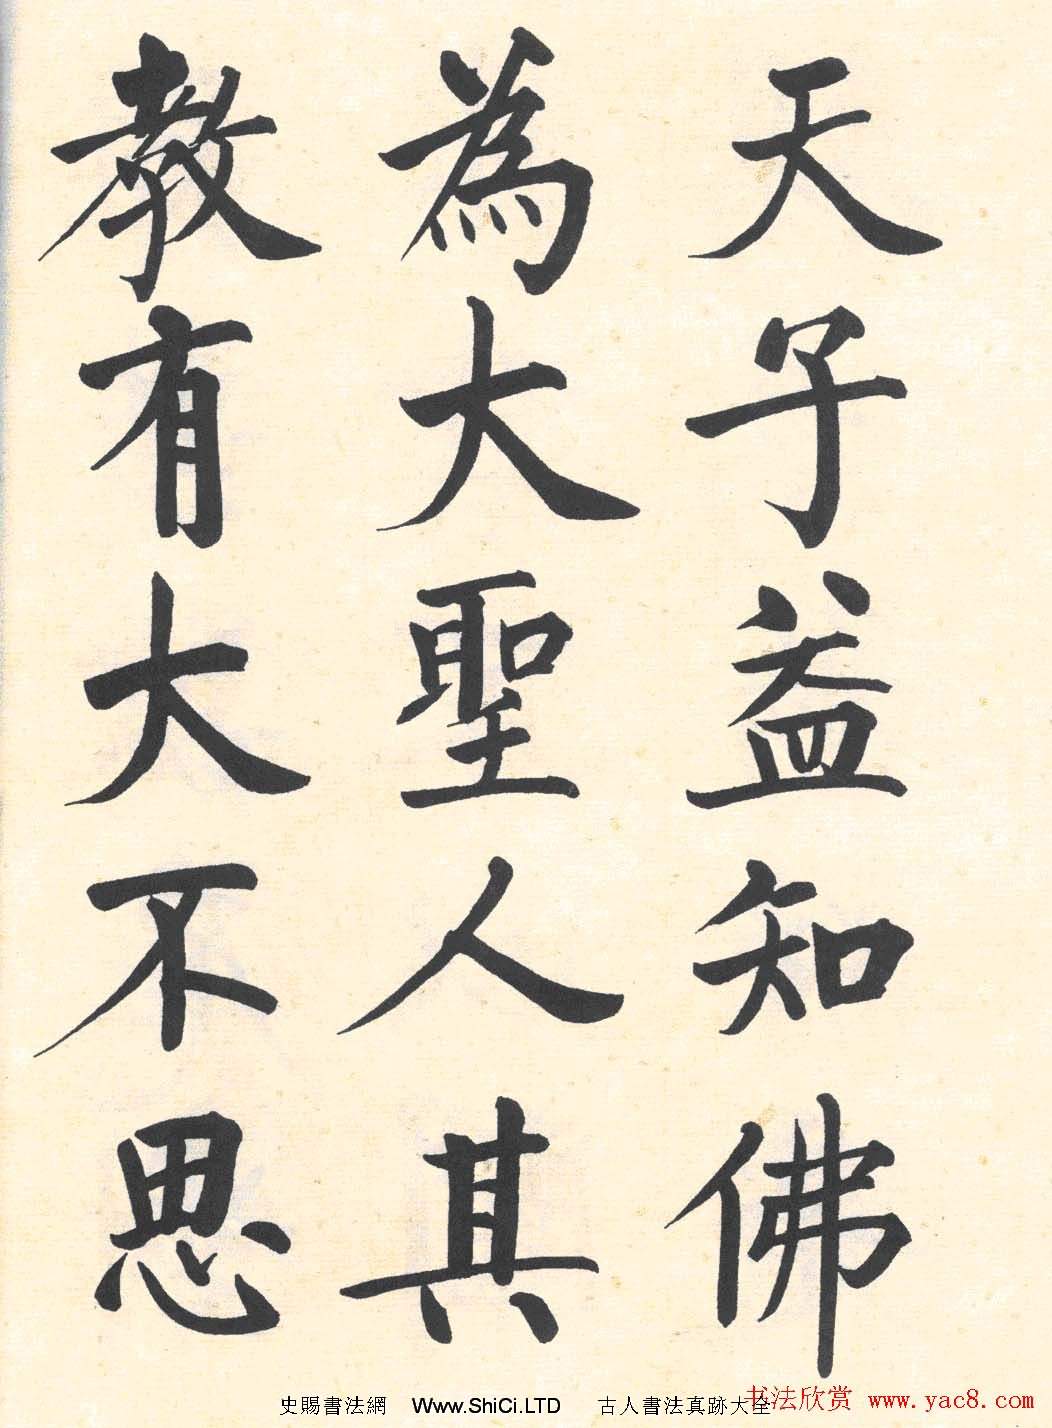 天子益知佛
為大聖人其
教有大不思
史賜書法網 Www.ShiCi.LTD 古人書法真跡大全
书法欣赏 www.yac8.com